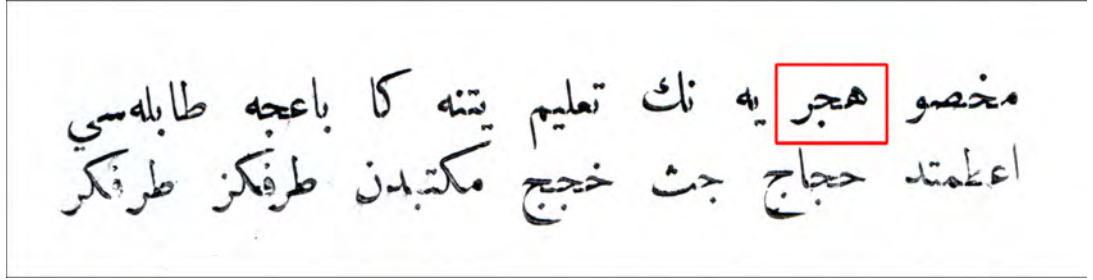 مخصو هجر یه نك تعلیم یتنه كا باعجه طابله سي
اعطمتد حجاج جث خجج مكتبدن طرفكز طرفكر